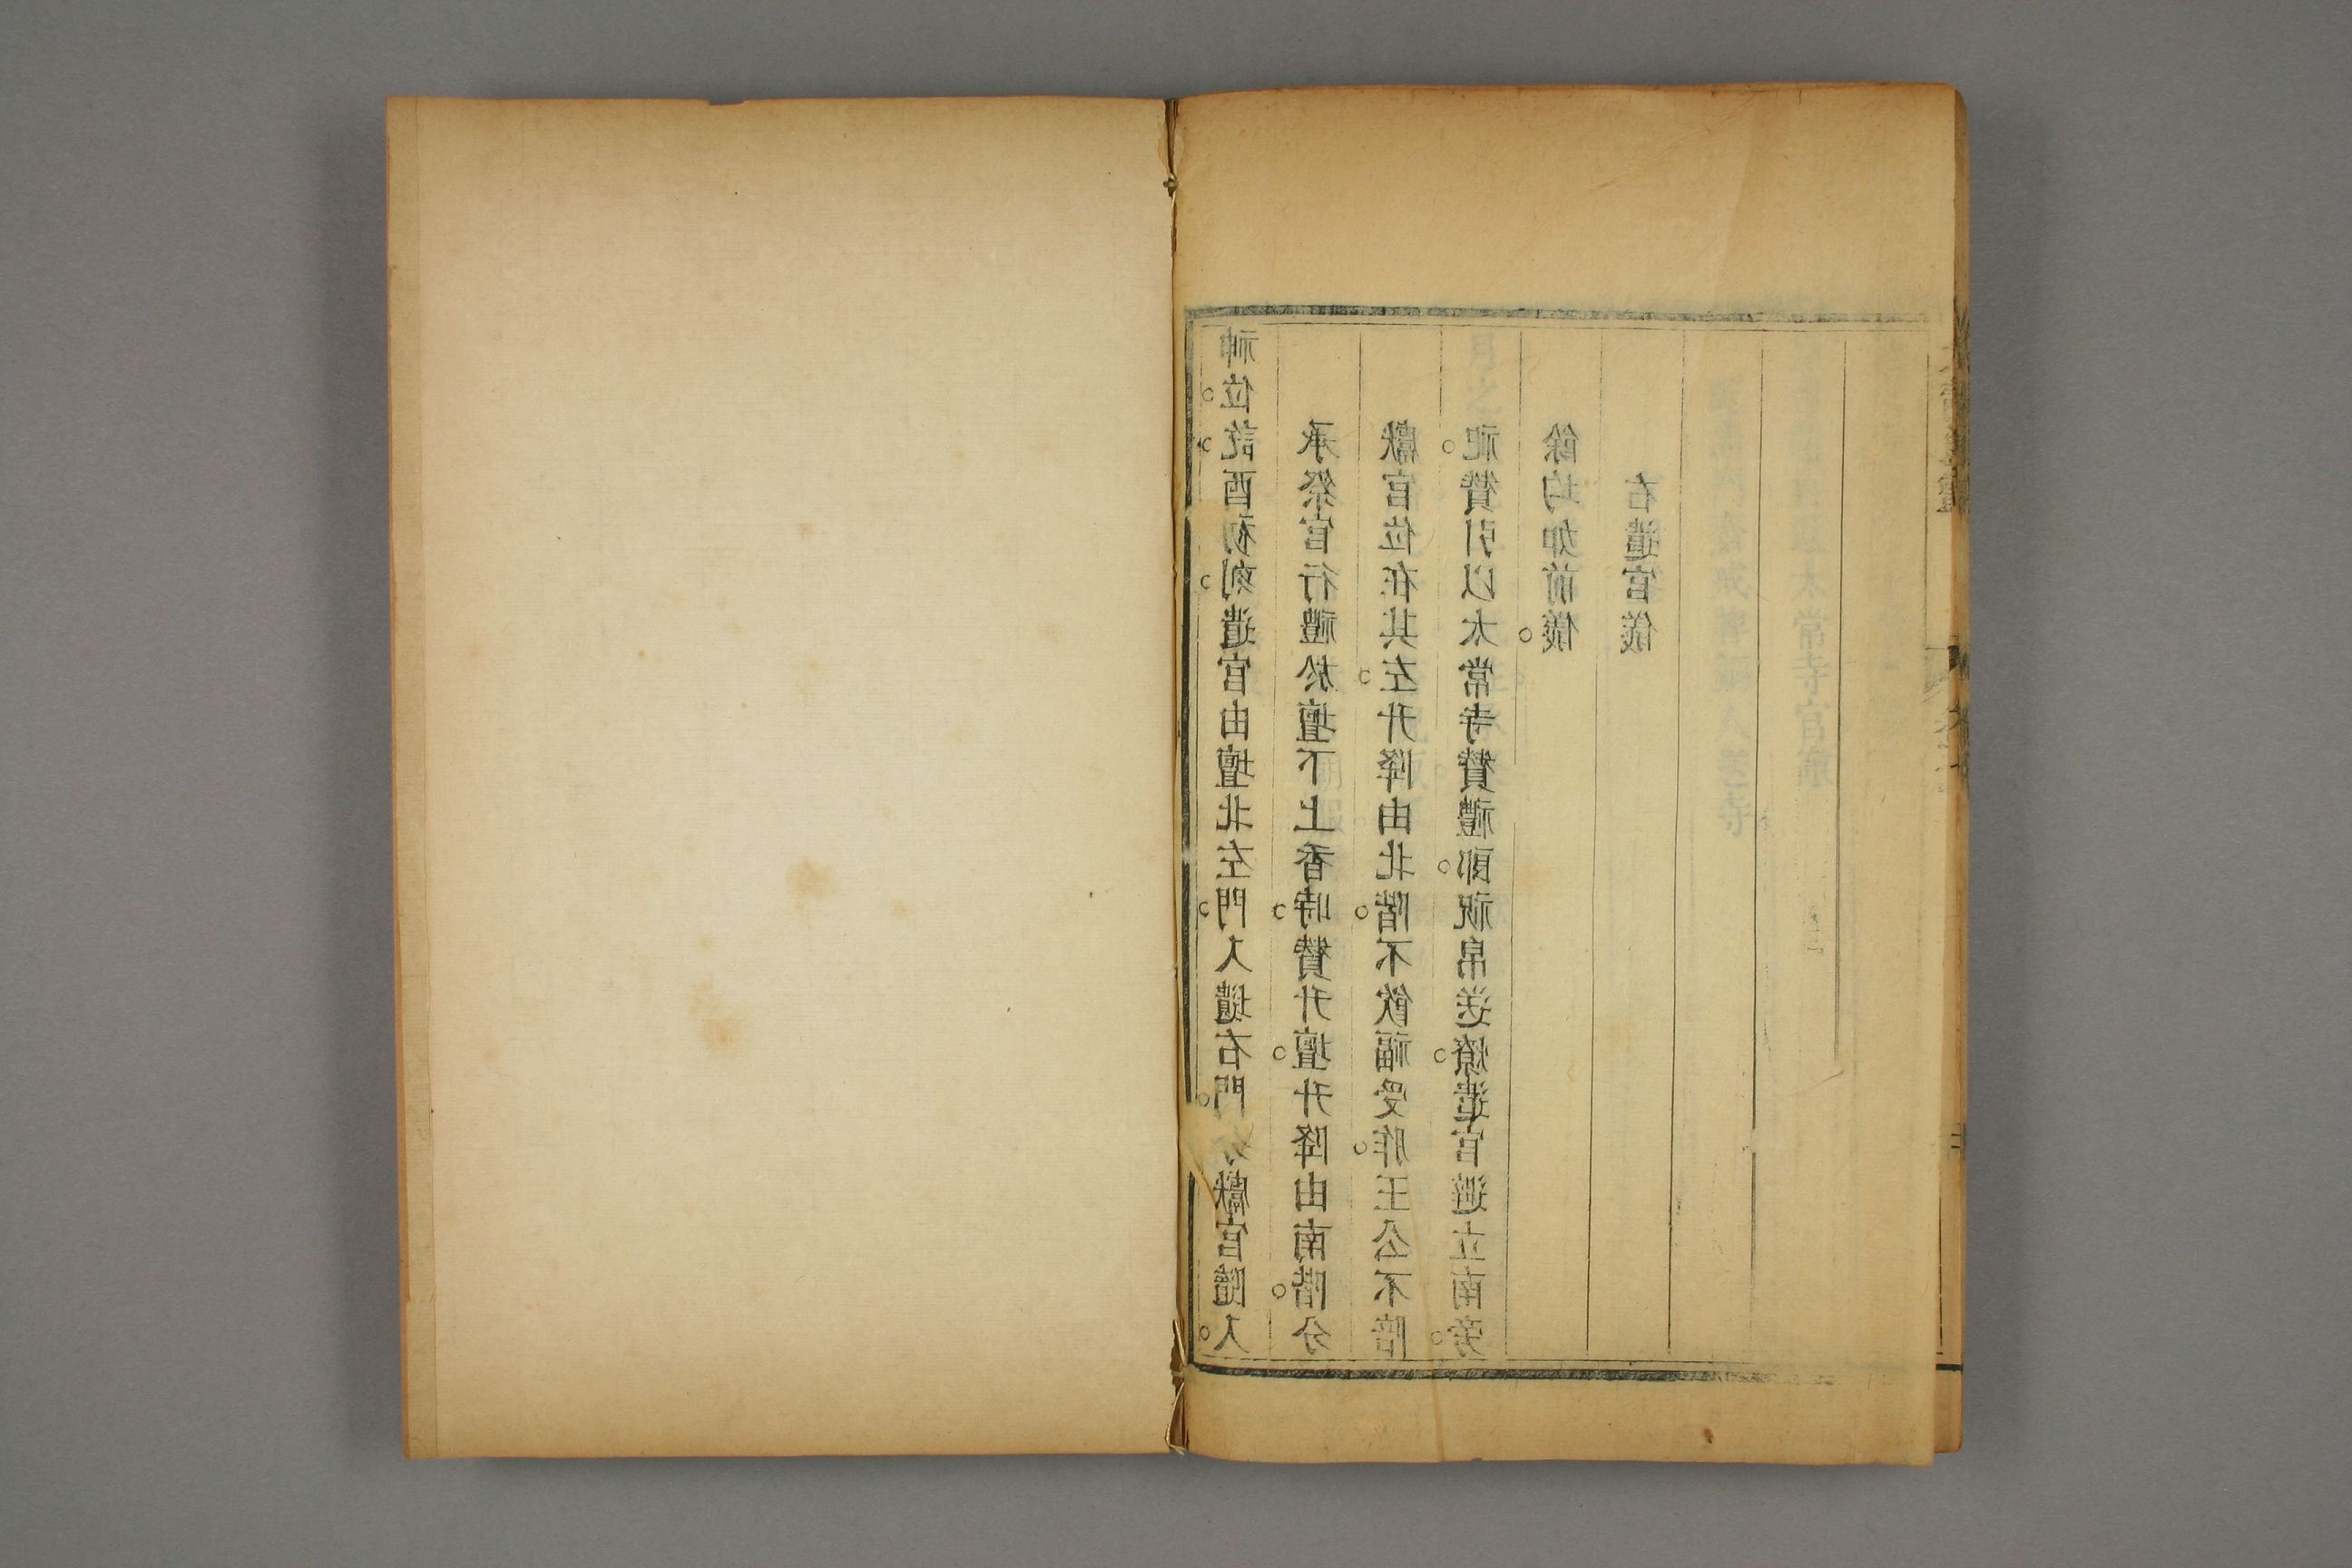 神位。訖。酉初刻。遣官由壇北左門。入壝右門。分獻官隨入。
承祭官行禮於壇下上香時。贊升壇。升降由南階。分
獻官位在其左。升降由北階。不飲福受胙。王公不陪
祀。贊引以太常寺贊禮郎。祝帛送燎。遣官避立南旁。
餘均如前儀。
右遣官儀